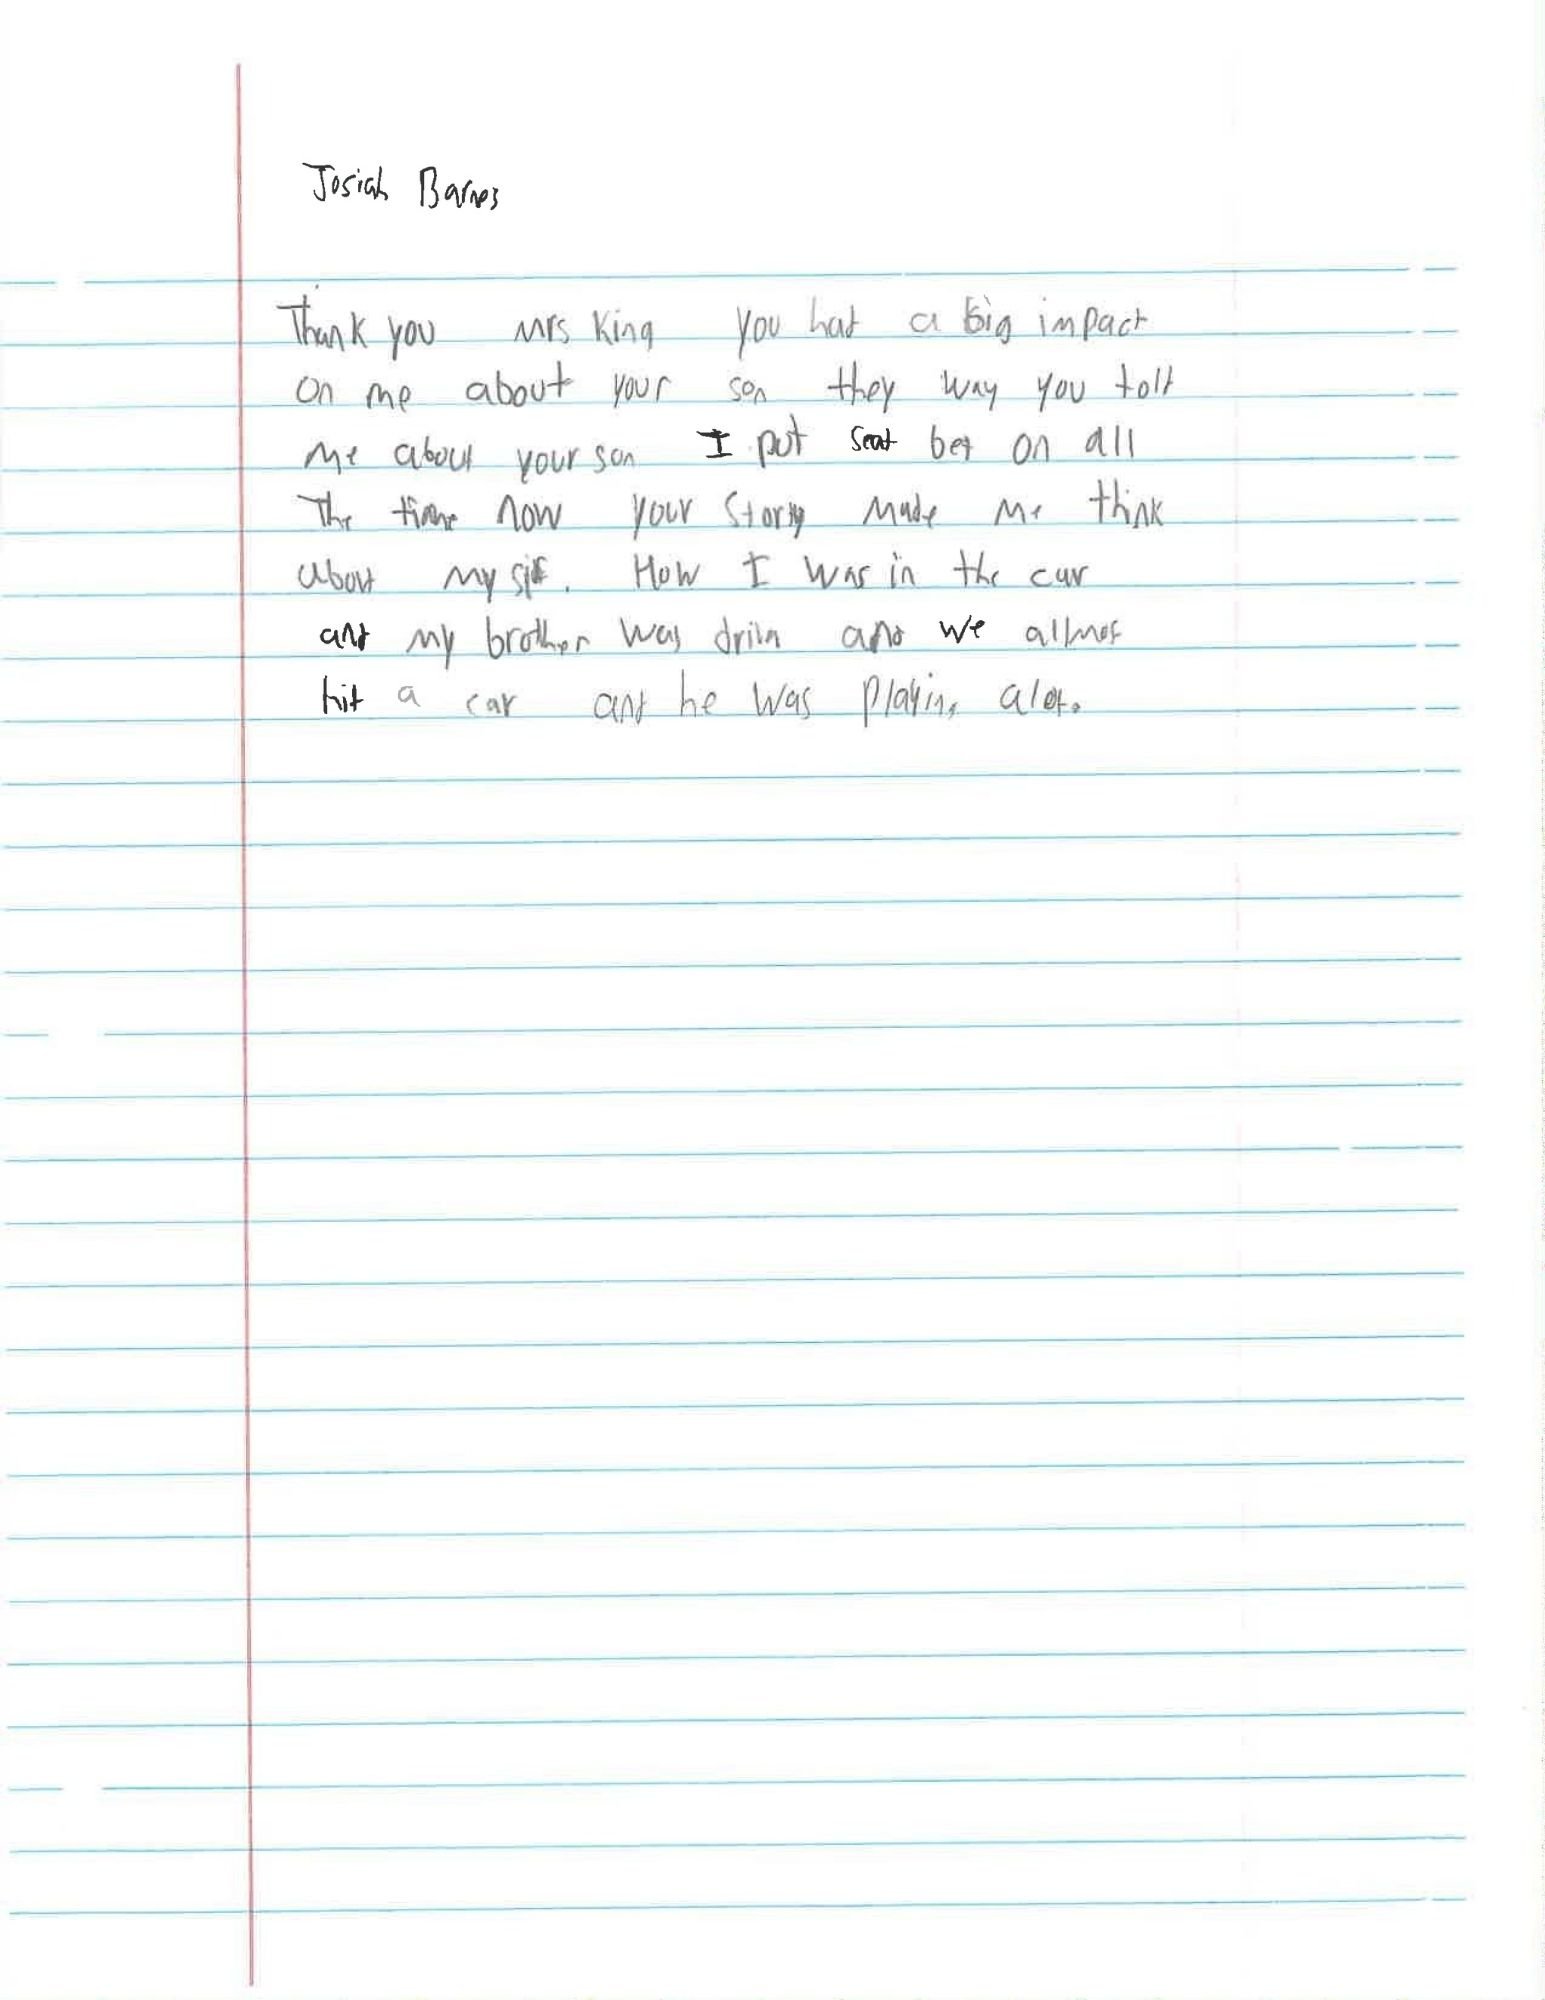 Josiah Barnes
Thank you mrs King you had a big impact
on me about your son they way you told
me about your son I put seat bet on all
The time now your story made me think
about my slf. How I was in the car
and my brother was drivn and we allmos
hit a car and he was playing alot.